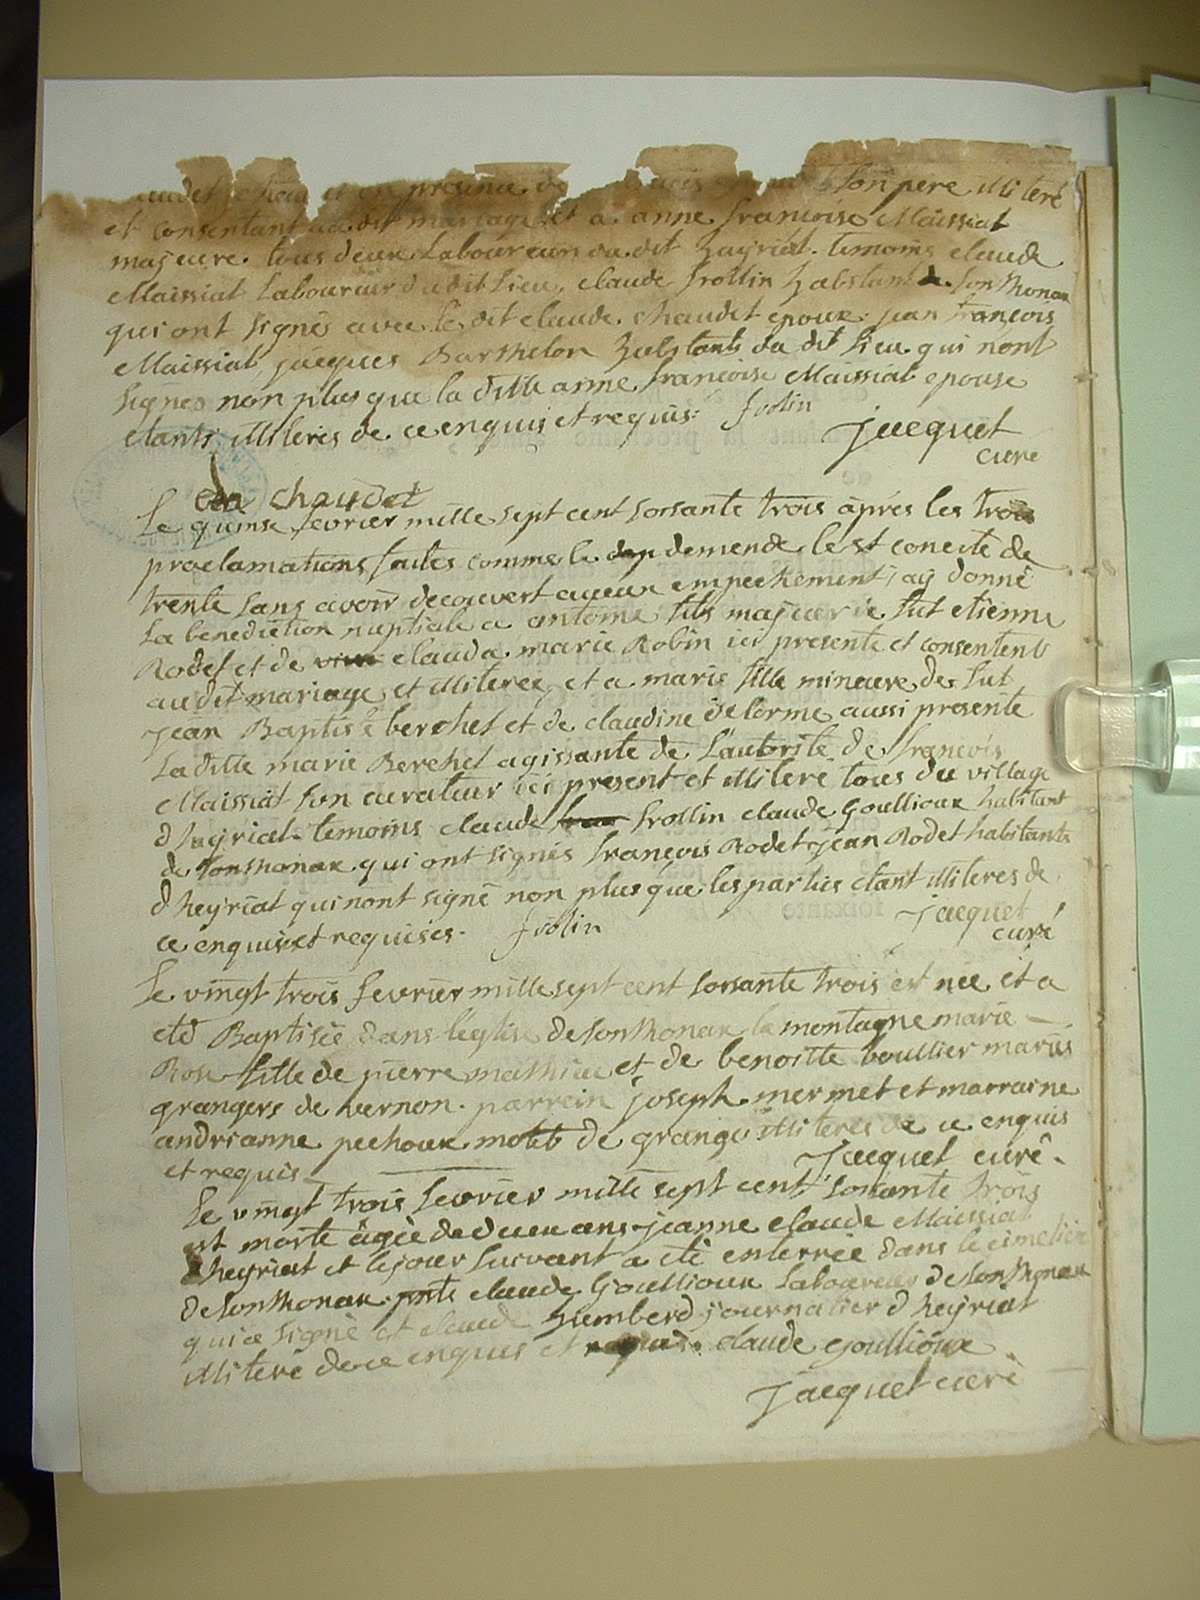 presence de son pere illiteré
et consentant au dit mariage et a anne françoise Maissiat
majeure. tous deux Laboureurs du dit heyriat. temoins claude
Maissiat Laboureur du dit Lieu, claude frollin habitant de sonthonax
qui ont signés avec le dit claude chaudet epoux. jean françois
Maissiat jacques Barthelon habitants du dit Lieu qui nont
signés non plus que la ditte anne françoise Maissiat epouse
etants illiterés de ce enquis et requis. frolin
jacquet
curé
chaudet
Le quinse fevrier mille sept cent soisante trois après les trois
proclamations faites comme le demende le st concile de
trente sans avoir decouvert aucun empechement, ay donné
La benediction nuptiale a antoine fils majeur de fut etienne
Rodet et de clauda marie Robin ici presente et consentente
audit mariage et illiterée, et a marie fille mineure de fut
jean Baptiste berchet et de claudine delorme aussi presente
Laditte marie Berchet agissante de L'autorité de françois
Maissiat son curateur ici present et illiteré tous du village
d heyriat. temoins claude frollin claude Goullioux habitant
de sonthonax qui ont signés françois Rodet jean Rodet habitants
d heyriat qui nont signé non plus que les parties etant illiteres de
ce enquises et requises. frolin
jacquet
curé
Le vingt trois fevrier mille sept cent soisante trois est née et a
eté Baptisée dans leglise de sonthonax la montagne marie
Rose fille de pierre mathieu et de benoitte boullier mariés
grangers de vernon. parrein joseph mermet et marraine
andrianne pechoux de grange illiteres de ce enquis
et requis
jacquet curé.
Le vingt trois fevrier mille sept cent soisante trois
est morte âgée de deux ans jeanne claude Maissiat
d heyriat et le jour suivant a eté enterrée dans le cimetiere
de sonthonax. pnts claude Goullioux Laboureur de sonthonax
qui a signé et claude humberd journalier d heyriat
illiteré de ce enquis et requis. claude goullioux
jacquet curé